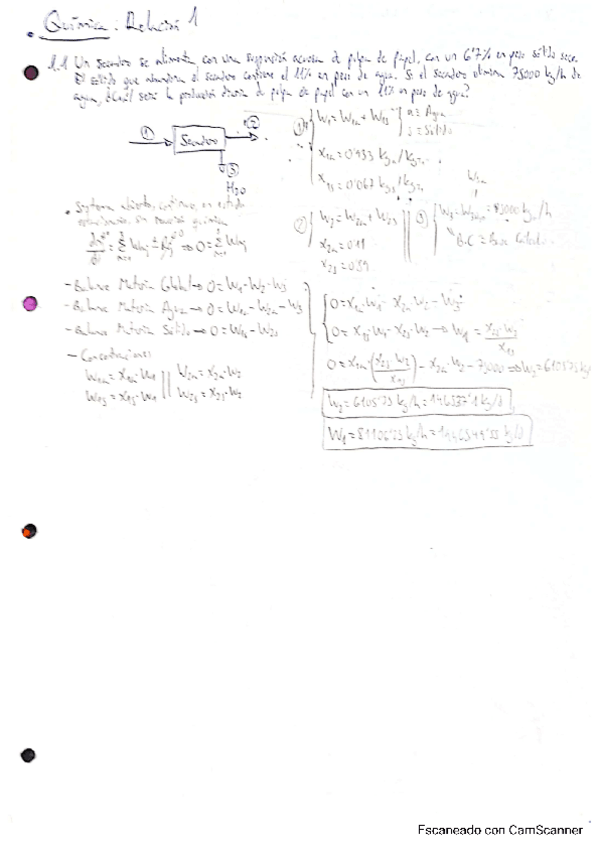 Química: Relación 1
1.1 Un secador se alimenta con una suspensión acuosa de pulpa de papel, con un 6'7% en peso sólido seco.
El sólido que abandona el secador contiene el 11% en peso de agua. Si el secador elimina 75000 kg/h de
agua, ¿Cuál será la producción diaria de pulpa de papel con un 11% en peso de agua?
① Secador ②
③
H₂O
① W₁ = W₁ₐ + W₁s a ≡ Agua
s ≡ Sólido
x₁ₐ = 0'933 kgₐ/kgT₁
x₁s = 0'067 kgs/kgT₁
• Sistema abierto, continuo, en estado
estacionario, sin reacción química
② W₂ = W₂ₐ + W₂s
x₂ₐ = 0'11
x₂s = 0'89
③ kg/h
B.C ≡ Base Cálculo
- Balance Materia Global → 0 = W₁ - W₂ - W₃
- Balance Materia Agua → 0 = W₁ₐ - W₂ₐ - W₃
- Balance Materia Sólido → 0 =
- Concentraciones
W₁ₐ = x₁ₐ · W₁ || W₂ₐ = x₂ₐ · W₂
W₁s = x₁s · W₁ || W₂s = x₂s · W₂
0 = x₁ₐ · W₁ - x₂ₐ · W₂ - W₃
0 = x₁s · W₁ - x₂s · W₂ → W₁ = x₂s · W₂ / x₁s
0 = x₁ₐ · (x₂s · W₂ / x₁s) - x₂ₐ · W₂ - 75000 ⇒ W₂ =
W₂ = kg/h = kg/d
W₁ = kg/h = kg/d
Escaneado con CamScanner